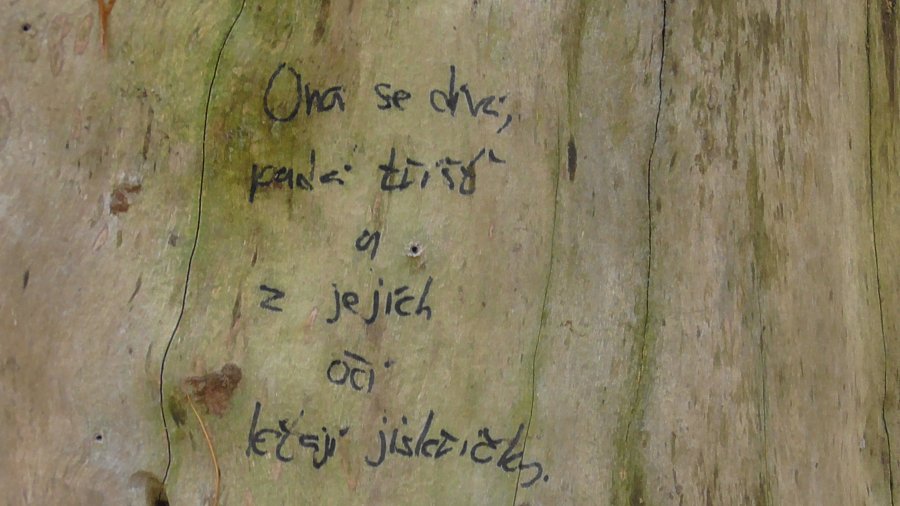 Ona se dívá,
padá tříšť
a
z jejích
očí
létají jiskřičky.